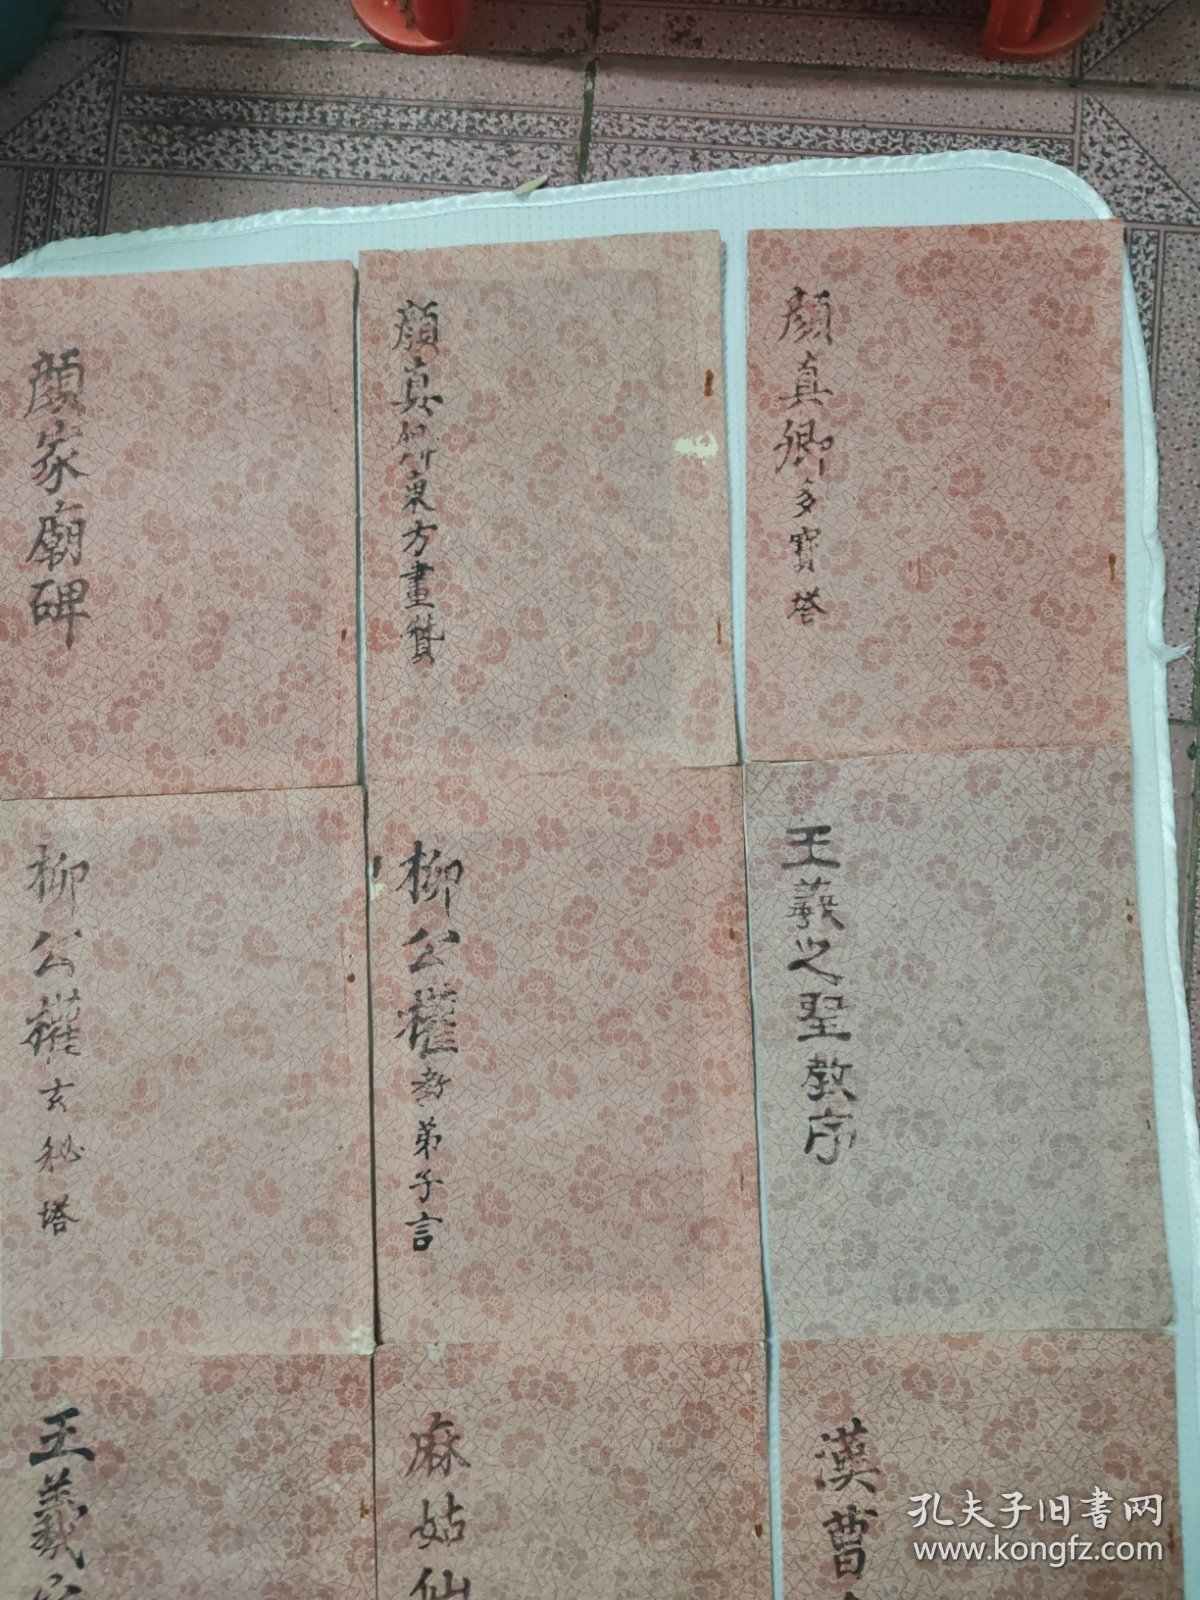 顔家廟碑
顔真卿東方畫贊
顔真卿多寶塔
柳公權玄秘塔
柳公權教弟子言
王羲之聖教序
王羲
麻姑仙
漢曹
孔夫子旧書网
www.kongfz.com